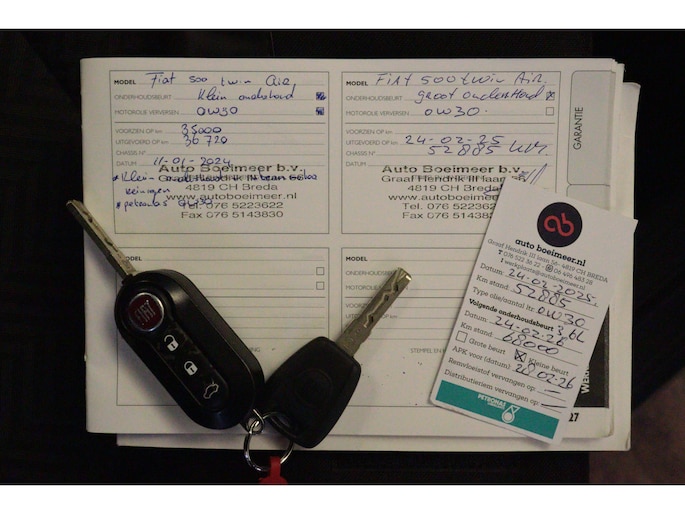 MODEL Fiat 500 twin Air
ONDERHOUDSBEURT Klein onderhoud
MOTOROLIE VERVERSEN 0W30
VOORZIEN OP km 35000
UITGEVOERD OP km 36720
CHASSIS N°
DATUM 11-01-2024
Auto Boeimeer b.v.
Graaf Hendrik III laan 56
4819 CH Breda
www.autoboeimeer.nl
Tel. 076 5223622
Fax 076 5143830
* Klein
reinigen
* petronas 0W30
MODEL FIAT 500 twin Air.
ONDERHOUDSBEURT groot onderhoud
MOTOROLIE VERVERSEN 0W30.
VOORZIEN OP km
UITGEVOERD OP km 24-02-25
CHASSIS N° 52885 km.
DATUM
Auto Boeimeer b.v.
Graaf Hendrik III laan 56
4819 CH Breda
www.autoboeimeer.nl
Tel. 076 5223622
Fax 076 5143830
GARANTIE
MODEL
MODEL
ONDERHOUDSBEURT
MOTOROLIE
VOORZIEN
UITGEVOERD
STEMPEL EN
FIAT
ab
auto boeimeer.nl
Graaf Hendrik III laan 56 - 4819 CH BREDA
T 076 522 36 22 - 06 496 483 28
I werkplaats@autoboeimeer.nl
Datum: 24-02-2025.
Km stand: 52885
Type olie/aantal ltr: 0W30
3,6L
Volgende onderhoudsbeurt
Datum: 24-02-26
Km stand: 68000
Grote beurt Kleine beurt
APK voor (datum): 28-02-26
Remvloeistof vervangen op: —
Distributieriem vervangen op: —
PETRONAS
27